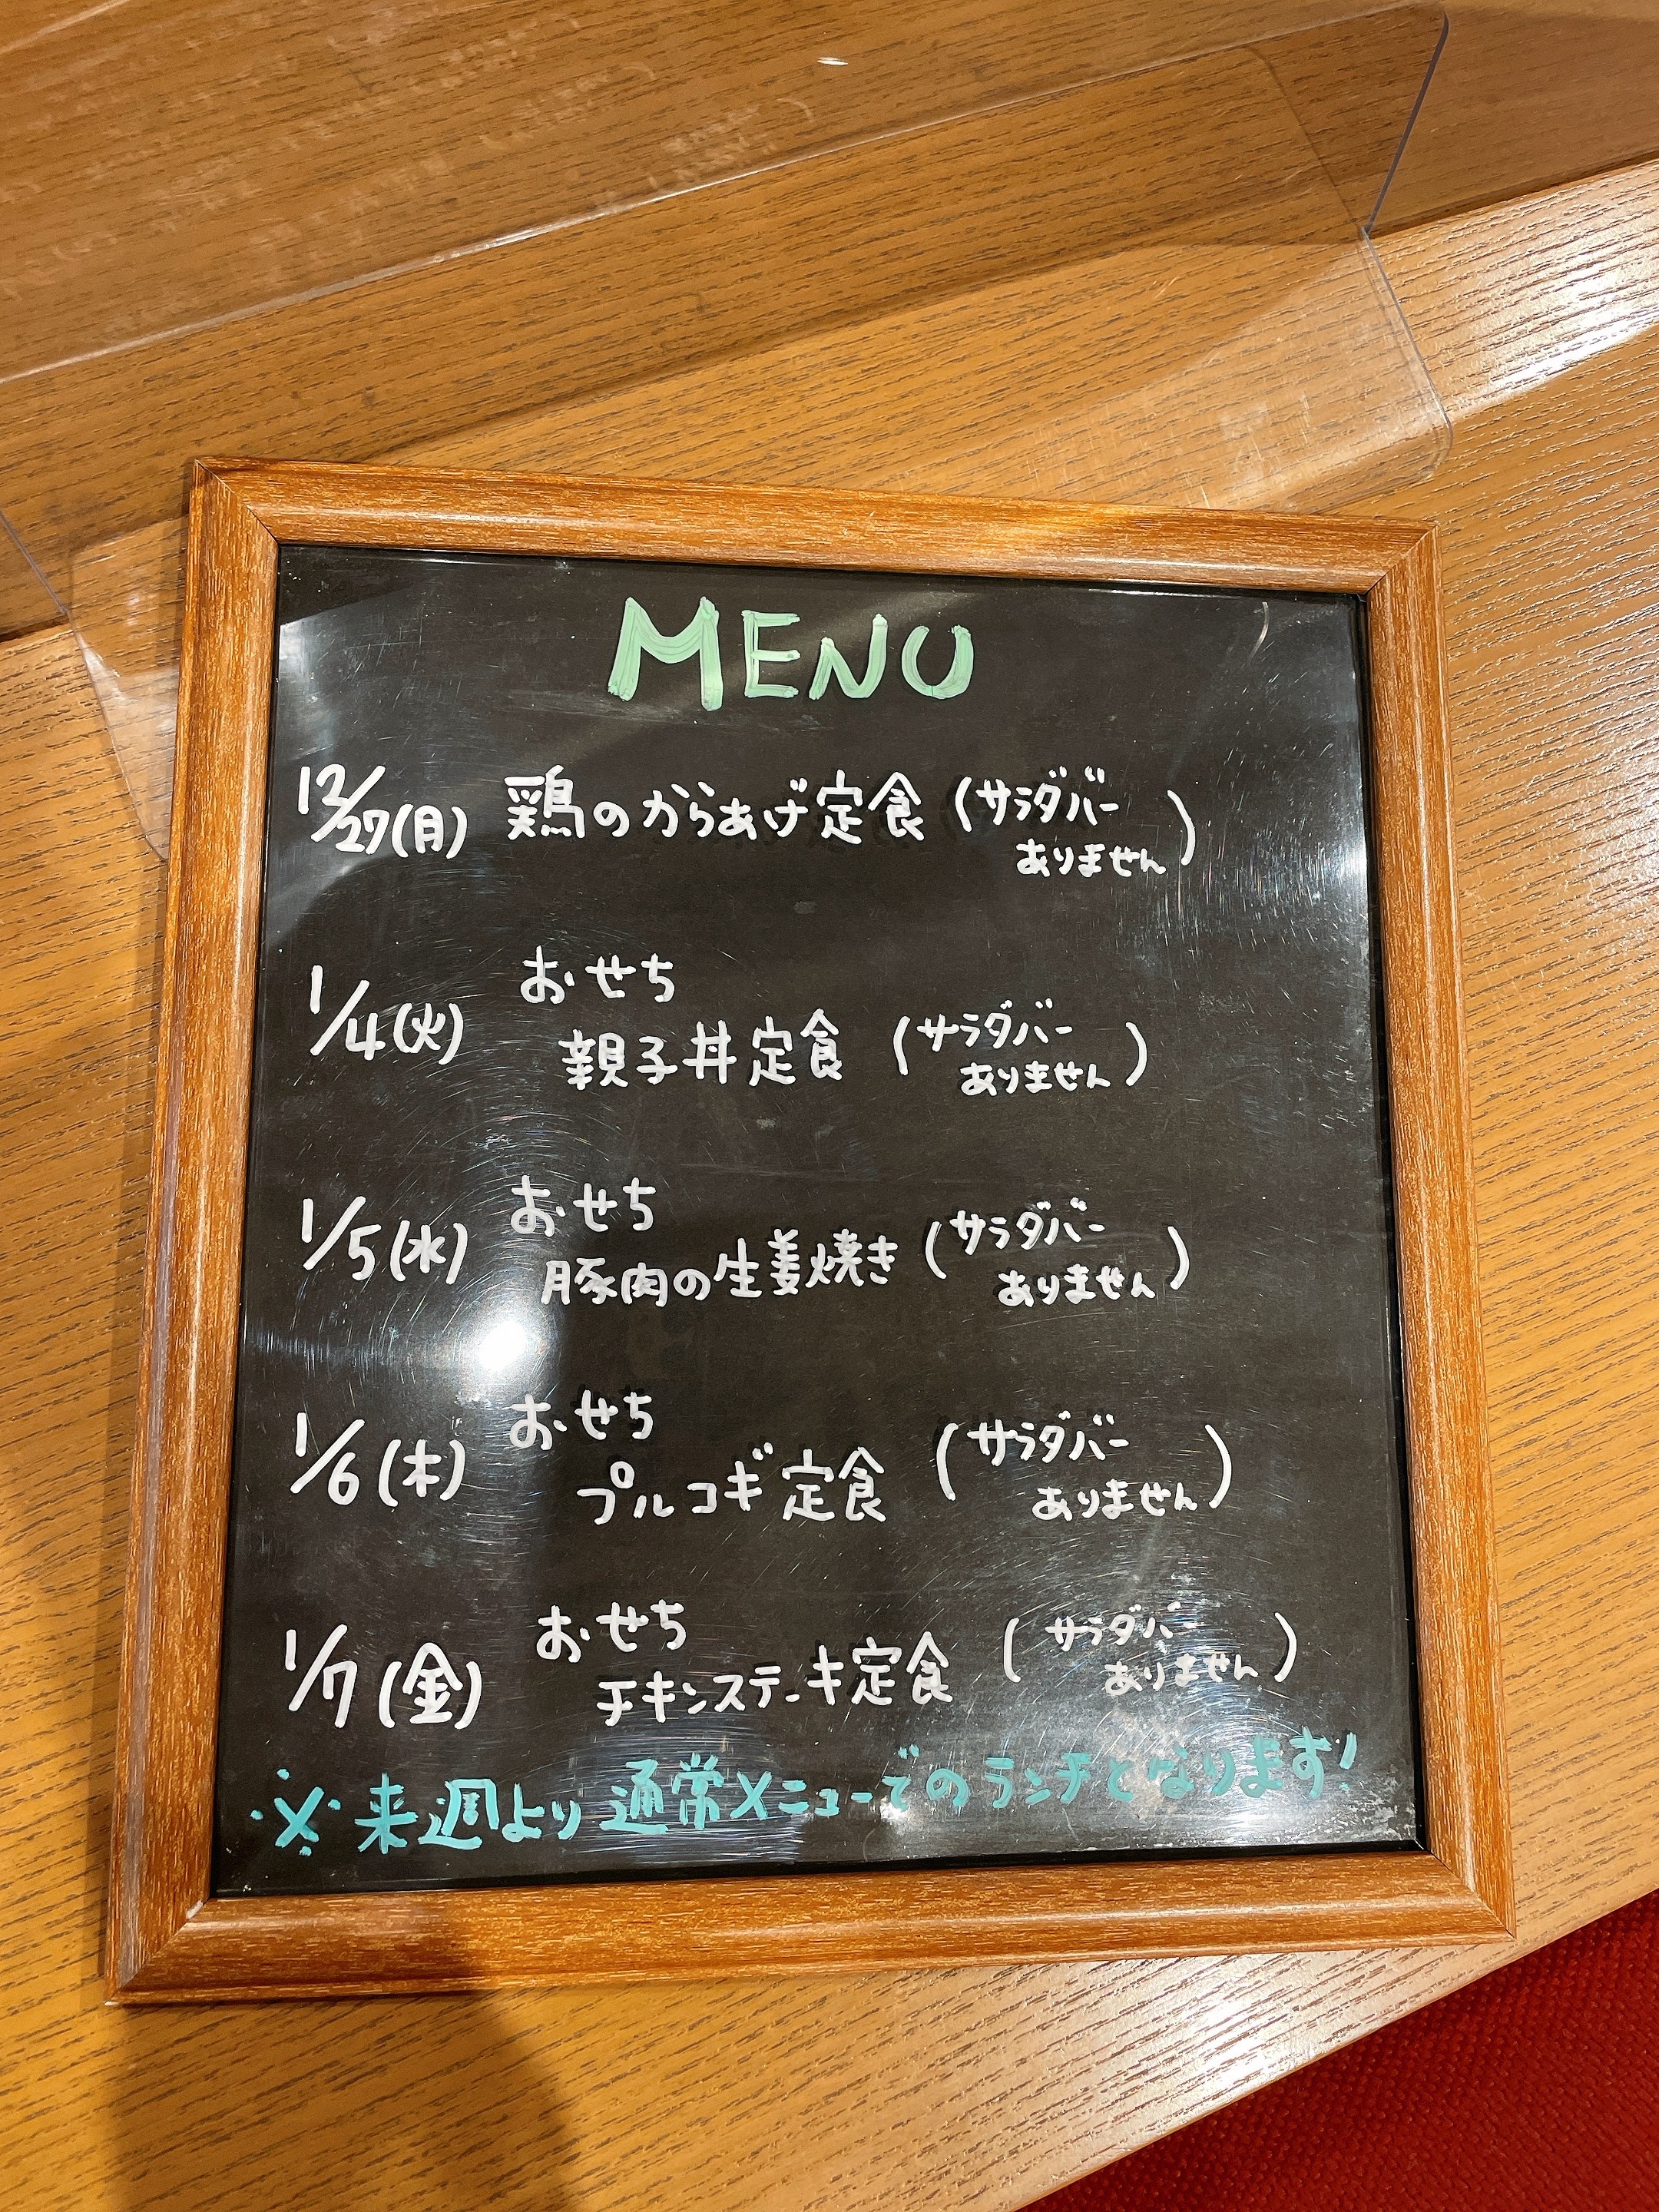 MENU
12/27(月) 鶏のからあげ定食 (サラダバー
ありません)
おせち
1/4(火) 親子丼定食 (サラダバー
ありません)
おせち
1/5(水) 豚肉の生姜焼き (サラダバー
ありません)
おせち
1/6(木) プルコギ定食 (サラダバー
ありません)
おせち
1/7(金) チキンステーキ定食 (サラダバー
ありません)
※来週より通常メニューでのランチとなります!